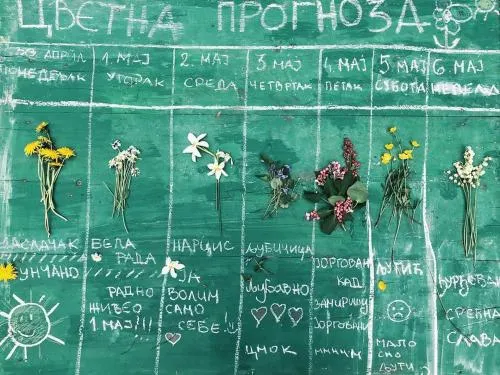 ЦВЕТНА ПРОГНОЗА
30. АПРИЛ 1. МАЈ 2. МАЈ 3 МАЈ 4. МАЈ 5 МАЈ 6. МАЈ
ПОНЕДЕЉАК УТОРАК СРЕДА ЧЕТВРТАК ПЕТАК СУБОТА НЕДЕЉА
МАСЛАЧАК
СУНЧАНО
БЕЛА
РАДА
РАДНО
ЖИВЕО
1. МАЈ!!!
НАРЦИС
ЈА
ВОЛИМ
САМО
СЕБЕ!
ЉУБИЧИЦА
ЉУБАВНО
ЦМОК
ЈОРГОВАН
КАД
ЗАМИРИШУ
ЈОРГОВАНИ
МММММ
ЉУТИЋ
МАЛО
СМО
ЉУТИ
ЂУРЂЕВАК
СРЕЋНА
СЛАВА